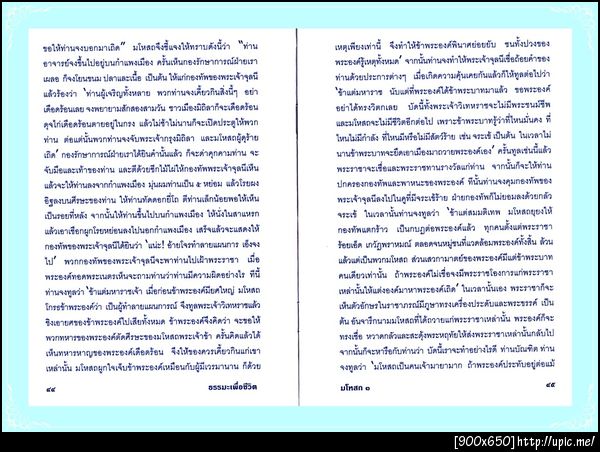 ขอให้ท่านจงบอกมาเถิด” มโหสถจึงชี้แจงให้ทราบดังนี้ว่า “ท่าน
อาจารย์จงขึ้นไปอยู่บนกำแพงเมือง ครั้นเห็นกองรักษาการณ์ฝ่ายเรา
เผลอ ก็จงโยนขนม ปลาและเนื้อ เป็นต้น ให้แก่กองทัพของพระเจ้าจุลนี
แล้วร้องว่า ‘ท่านผู้เจริญทั้งหลาย พวกท่านจงเคี้ยวกินสิ่งนี้ๆ อย่า
เดือดร้อนเลย จงพยายามสักสองสามวัน ชาวเมืองมิถิลาก็จะเดือดร้อน
ดุจไก่เดือดร้อนตายอยู่ในกรง แล้วไม่ช้าไม่นานก็จะเปิดประตูให้พวก
ท่าน ต่อแต่นั้นพวกท่านจงจับพระเจ้ากรุงมิถิลา และมโหสถผู้ดุร้าย
เถิด’ กองรักษาการณ์ฝ่ายเราได้ยินคำนั้นแล้ว ก็จะด่าคุกคามท่าน จะ
จับมือและเท้าของท่าน และตีด้วยซีกไม้ไผ่ให้กองทัพพระเจ้าจุลนีเห็น
แล้วจะให้ท่านลงจากกำแพงเมือง มุ่นผมท่านเป็น ๕ หย่อม แล้วโรยผง
อิฐลงบนศีรษะของท่าน ให้ท่านทัดดอกยี่โถ ตีท่านเล็กน้อยพอให้เห็น
เป็นรอยที่หลัง จากนั้นให้ท่านขึ้นไปบนกำแพงเมือง ให้นั่งในสาแหรก
แล้วเอาเชือกผูกโรยหย่อนลงไปนอกกำแพงเมือง เสร็จแล้วจะแสดงให้
กองทัพของพระเจ้าจุลนีได้ยินว่า ‘แน่ะ! อ้ายโจรทำลายแผนการ เอ็งจง
ไป’ พวกกองทัพของพระเจ้าจุลนีจะพาท่านไปเฝ้าพระราชา เมื่อ
พระองค์ทอดพระเนตรเห็นจะถามท่านว่าท่านมีความผิดอย่างไร ทีนี้
ท่านจงทูลว่า ‘ข้าแต่มหาราชเจ้า เมื่อก่อนข้าพระองค์มียศใหญ่ มโหสถ
โกรธข้าพระองค์ว่า เป็นผู้ทำลายแผนการณ์ จึงทูลพระเจ้าวิเทหราชแล้ว
ชิงเอายศของข้าพระองค์ไปเสียทั้งหมด ข้าพระองค์จึงคิดว่า จะขอให้
พวกทหารของพระองค์ตัดศีรษะของมโหสถพระเจ้าข้า ครั้นคิดแล้วได้
เห็นทหารหาญของพระองค์เดือดร้อน จึงให้ของควรเคี้ยวกินแก่เขา
เหล่านั้น มโหสถผูกใจเจ็บข้าพระองค์เหมือนกับผู้มีเวรมานาน ก็ด้วย
๔๔ ธรรมะเพื่อชีวิต
เหตุเพียงเท่านี้ จึงทำให้ข้าพระองค์พินาศย่อยยับ ชนทั้งปวงของ
พระองค์รู้เหตุทั้งหมด’ จากนั้นท่านจงทำให้พระเจ้าจุลนีเชื่อถ้อยคำของ
ท่านด้วยประการต่างๆ เมื่อเกิดความคุ้นเคยกันแล้วก็ให้ทูลต่อไปว่า
‘ข้าแต่มหาราช นับแต่ที่พระองค์ได้ข้าพระบาทมาแล้ว ขอพระองค์
อย่าได้ทรงวิตกเลย บัดนี้ทั้งพระเจ้าวิเทหราชจะไม่มีพระชนม์ชีพ
และมโหสถจะไม่มีชีวิตอีกต่อไป เพราะข้าพระบาทรู้ว่าที่ไหนมั่นคง ที่
ไหนไม่มีกำลัง ที่ไหนมีหรือไม่มีสัตว์ร้าย เช่น จระเข้ เป็นต้น ในเวลาไม่
นานข้าพระบาทจะยึดเอาเมืองมาถวายพระองค์เอง’ ครั้นทูลเช่นนี้แล้ว
พระราชาจะเชื่อและพระราชทานรางวัลแก่ท่าน จากนั้นก็จะให้ท่าน
ปกครองกองทัพและพาหนะของพระองค์ ทีนั้นท่านจงคุมกองทัพของ
พระเจ้าจุลนีลงไปในคูที่มีจระเข้ร้าย ฝ่ายกองทัพก็ไม่ยอมลงด้วยกลัว
จระเข้ ในเวลานั้นท่านจงทูลว่า ‘ข้าแต่สมมติเทพ มโหสถยุยงให้
กองทัพแตกร้าว เป็นกบฏต่อพระองค์แล้ว ทุกคนตั้งแต่พระราชา
ร้อยเอ็ด เกวัฏพราหมณ์ ตลอดจนหมู่ชนที่แวดล้อมพระองค์ทั้งสิ้น ล้วน
แล้วแต่เป็นพวกมโหสถ ส่วนเสวกามาตย์ของพระองค์มีแต่ข้าพระบาท
คนเดียวเท่านั้น ถ้าพระองค์ไม่เชื่อจงมีพระราชโองการแก่พระราชา
เหล่านั้นให้แต่งองค์มาหาพระองค์เถิด’ ในเวลานั้นเอง พระราชาก็จะ
เห็นตัวอักษรในราชาภรณ์มีภูษาทรงเครื่องประดับและพระขรรค์ เป็น
ต้น อันจารึกนามมโหสถที่ได้ถวายแก่พระราชาเหล่านั้น พระองค์ก็จะ
ทรงเชื่อ หวาดกลัวและสะดุ้งพระหฤทัยให้ส่งพระราชาเหล่านั้นกลับไป
จากนั้นก็จะหารือกับท่านว่า บัดนี้เราจะทำอย่างไรดี ท่านบัณฑิต ท่าน
จงทูลว่า ‘มโหสถเป็นคนเจ้ามายามาก ถ้าพระองค์ประทับอยู่ต่อแม้
มโหสถ ๑ ๔๕
[900x650]http://upic.me/